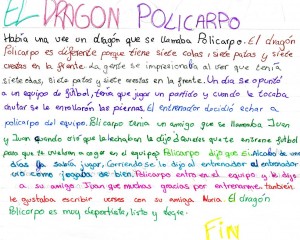 EL DRAGON POLICARPO
Había una vez un dragón que se llamaba Policarpo. El dragón
Policarpo es diferente porque tiene siete colas, siete patas y siete
crestas en la frente. La gente se impresionaba al ver que tenía
siete colas, siete patas y siete crestas en la frente. Un día se apuntó
a un equipo de fútbol, tenía que jugar un partido y cuando le tocaba
chutar se le enrollaban las piernas. El entrenador decidió echar a
policarpo del equipo. Policarpo tenía un amigo que se llamaba Juan
y Juan cuando vió que le echaban le dijo d que te entrene futbol
para que te vuelvan a coger en el equipo. Policarpo dijo que si. Al cabo de unos
días ya sabía jugar. Corriendo se lo dijo al entrenador el entrenador
vió como jugaba de bien. Policarpo entró en el equipo y le dijo
a su amigo Juan que muchas gracias por entrenarme. también
le gustaba escribir versos con su amiga Nuria. El dragón
Policarpo es muy deportista, listo y alegre.
FIN